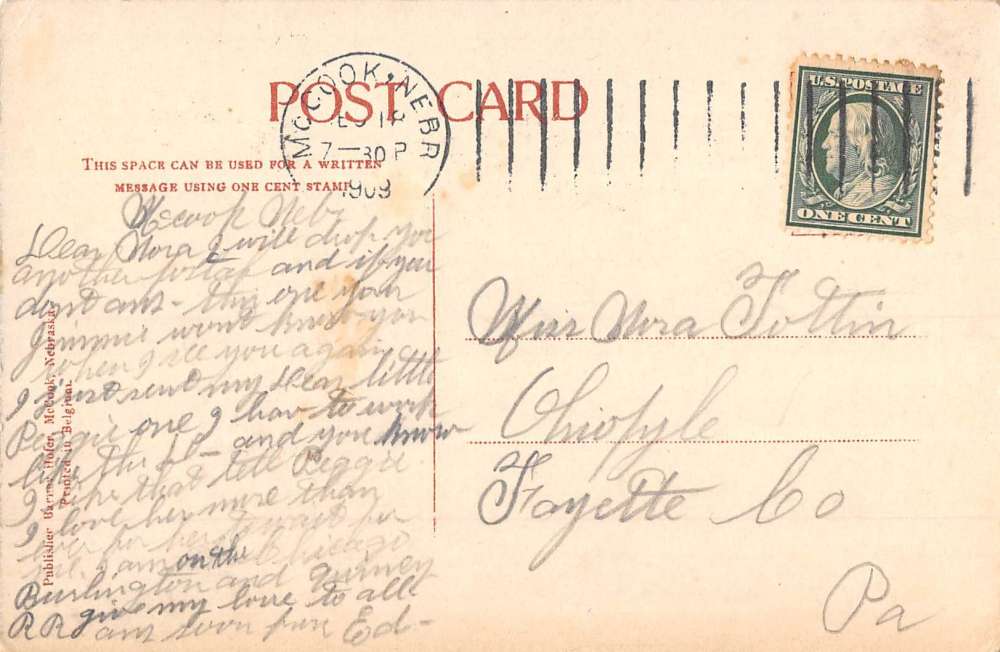 POST CARD
McCOOK, NEBR
7—30 P
1909
THIS SPACE CAN BE USED FOR A WRITTEN
MESSAGE USING ONE CENT STAMP
U.S. POSTAGE
ONE CENT
McCook Nebr
Dear Nora I will drop you
another postal and if you
dont ans - this one your
Jimmie wont know you
when I see you again
I just sent my Dear little
Peggie one I hav to work
like the and you know
I like that tell Peggie
I love her more than
ever for her to wait for
me I am on the Chicago
Burlington and Quincy
RR give my love to all
ans soon from Ed-
Miss Nora Tottin
Ohiopyle
Fayette Co
Pa
Publisher Hofer, McCook, Nebraska.
Printed in Belgium.